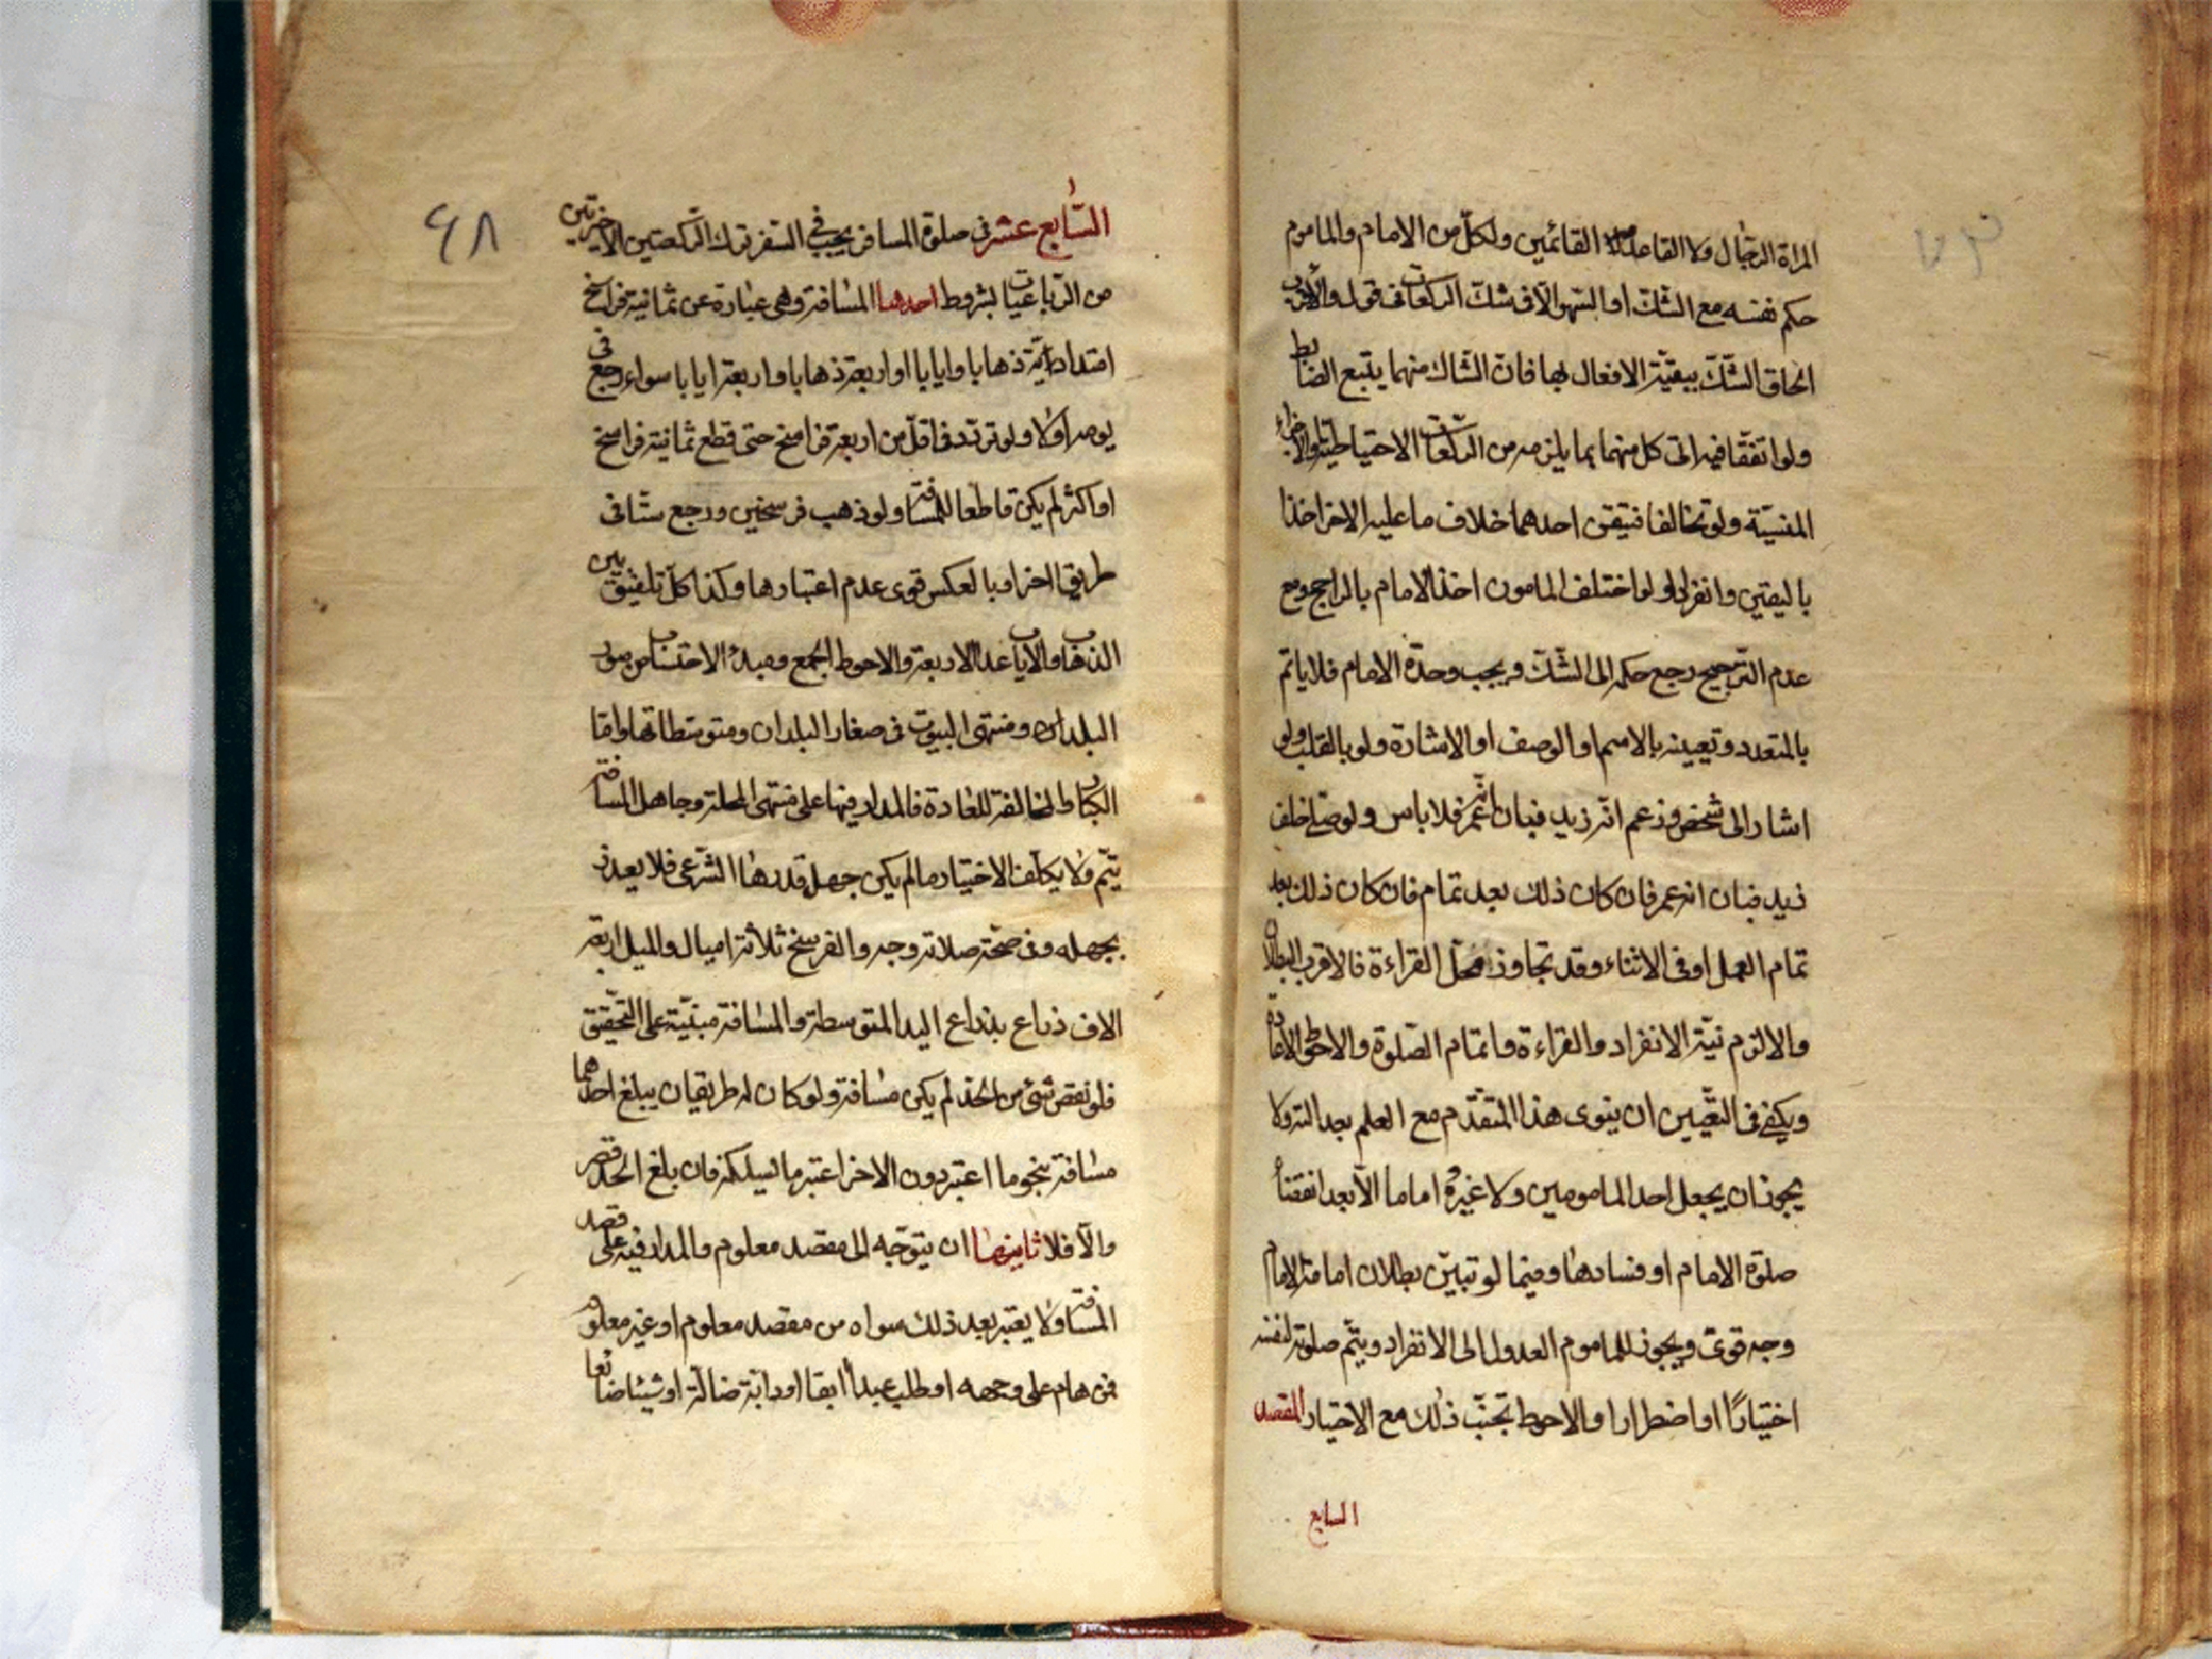 المراة الرجال ولا القاعد القائمين ولكل من الامام والماموم
حكم نفسه مع الشك او السهو الا فى شك الركعات فى قول والاقرب
الحاق الشك ببقية الافعال بها فان الشاك منهما يتبع الضابط
ولو اتفقا فيه اتى كل منهما بما يلزمه من الركعات الاحتياطية والاجزاء
المنسية ولو تخالفا فتيقن احدهما خلاف ما عليه الاخر اخذا
باليقين وانفردا ولو اختلف المامون اخذ الامام بالراجح ومع
عدم الترجيح رجع حكمه الى الشك ويجب وحدة الامام فلا ياتم
بالمتعدد وتعيينه بالاسم او الوصف او الاشارة ولو بالقلب ولو
اشار الى شخص وزعم انه زيد فبان انه عمر فلا باس ولو صلى خلف
زيد فبان انه عمر فان كان ذلك بعد تمام فان كان ذلك بعد
تمام العمل او فى الاثناء وقد تجاوز محل القراءة فالاقرب البطلان
والا لزم نية الانفراد والقراءة واتمام الصلوة والاحوط الاعادة
ويكفى فى التعيين ان ينوى هذا المتقدم مع العلم بعدالته ولا
يجوز ان يجعل احد المامومين ولا غيره اماما الا بعد انقضاء
صلوة الامام او فسادها وفيما لو تبين بطلان امامة الامام
وجه قوى ويجوز للماموم العدول الى الانفراد ويتم صلوته لنفسه
اختيارًا او اضطرارا والاحوط تجنب ذلك مع الاختيار المقصد
السابع
٤٨
السابع عشر فى صلوة المسافر يجب فى السفر ترك الركعتين الاخيرتين
من الرباعيات بشروط احدها المسافة وهى عبارة عن ثمانية فراسخ
امتدادية ذهابا وايابا او اربعة ذهابا واربعة ايابا سواء رجع فى
يومه اولا ولو تردد فى اقل من اربعة فراسخ حتى قطع ثمانية فراسخ
او اكثر لم يكن قاطعا للمسافة ولو ذهب فرسخين ورجع ستا فى
طريق اخر او بالعكس قوى عدم اعتبارها وكذا كل تلفيق بين
الذهاب والاياب عدا الاربعة والاحوط الجمع ومبدء الاحتساب من سور
البلدان ومنتهى البيوت فى صغار البلدان ومتوسطاتها واما
الكبار المخالفة للعادة فالمدار فيها على منتهى المحلة وجاهل المسافة
يتم ولا يكلف الاختيار ما لم يكن جهل قدرها الشرعى فلا يعذر
بجهله وفى صحة صلاته وجه والفرسخ ثلاثة اميال والميل اربعة
الاف ذراع بذراع اليد المتوسطة والمسافة مبنية على التحقيق
فلو نقص شئ من الحد لم يكن مسافة ولو كان له طريقان يبلغ احدهما
مسافة بنحو ما اعتبر دون الاخر اعتبر ما يسلكه فان بلغ الحد قصر
والا فلا ثانيها ان يتوجه الى مقصد معلوم والمدار فيه على قصد
المسافة ولا يعتبر بعد ذلك سواه من مقصد معلوم او غير معلوم
فمن هام على وجهه او طلب عبدا ابقا او دابة ضالة او شيئا ضائعا